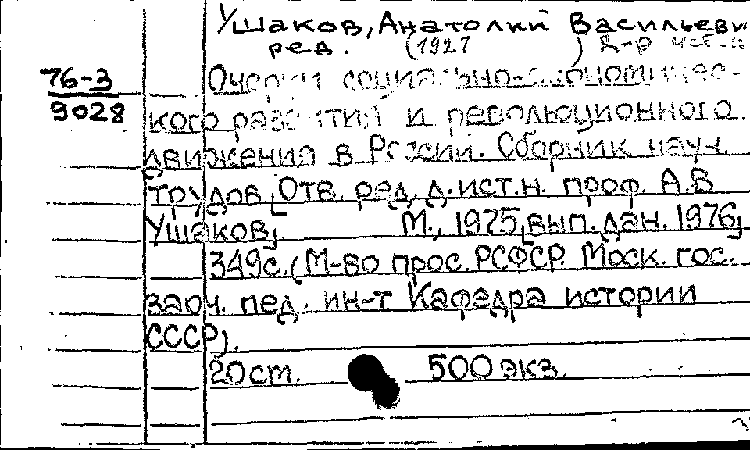 Ушаков, Анатолий Васильеви
ред. (1927 ) д-р ист.н
76-3
9028
Очерки социально-экономичес-
кого развития и революционного
движения в России. Сборник науч.
трудов [Отв. ред. д.ист.н. проф. А.В.
Ушаков] М., 1975 [вып. дан. 1976]
349с. (М-во прос. РСФСР. Моск. гос.
заоч. пед. ин-т Кафедра истории
СССР).
20 cm. 500 экз.